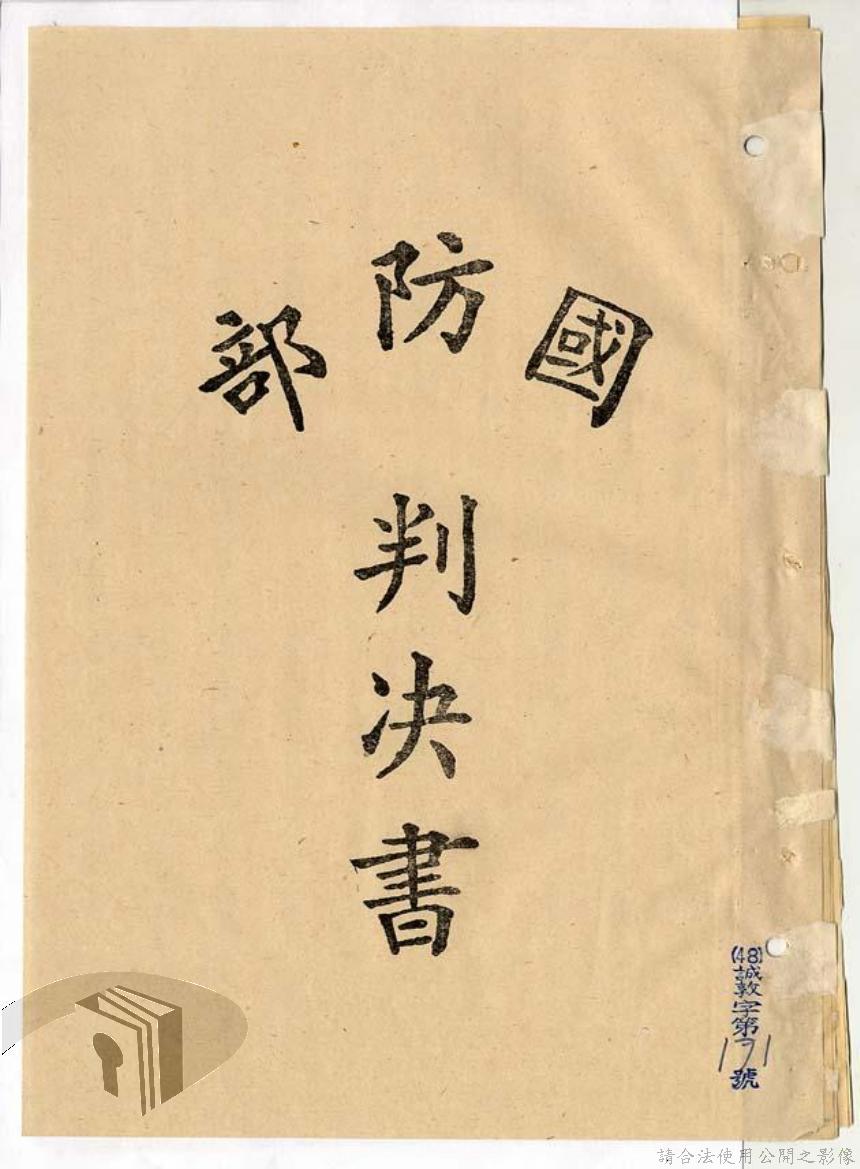 國防部
判決書
(48)誠敦字第171號
請合法使用公開之影像